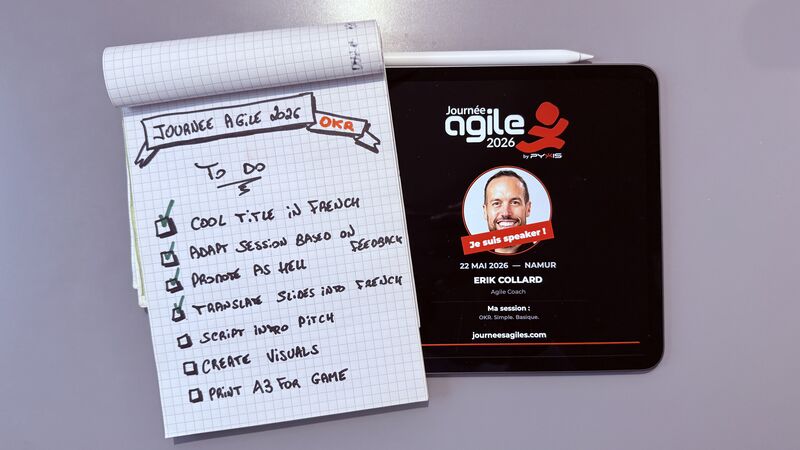 JOURNÉE AGILE 2026
OKR
TO DO
COOL TITLE IN FRENCH
ADAPT SESSION BASED ON
FEEDBACK
PROMOTE AS HELL
TRANSLATE SLIDES INTO FRENCH
SCRIPT INTRO PITCH
CREATE VISUALS
PRINT A3 FOR GAME
Journée
agile
2026
by PYXIS
Je suis speaker !
22 MAI 2026 — NAMUR
ERIK COLLARD
Agile Coach
Ma session :
OKR. Simple. Basique.
journeesagiles.com